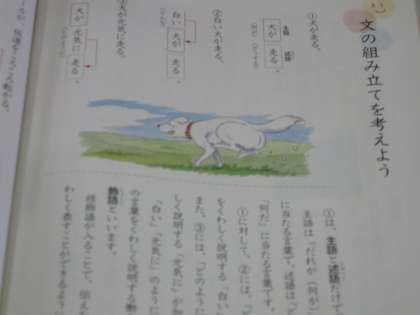 文の組み立てを考えよう
①犬が走る。
主語 述語
犬が 走る。
②白い犬が走る。
白い 犬が 走る。
③犬が元気に走る。
犬が 元気に 走る。
①は、主語と述語だけで
主語は「だれが（何が）
に当たる言葉で、述語は「ど
「何だ」に当たる言葉です。
①に対して、②には、「ど
をくわしく説明する「白い
また、③には、「どのように
しく説明する「元気に」が加
「白い」「元気に」のように
の言葉をくわしく説明する
飾語といいます。
修飾語が入ることで、伝えた
わしく表すことができるように